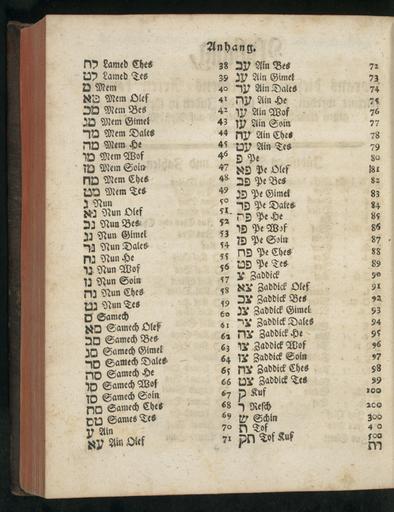 Anhang.
לח Lamed Ches 38
לט Lamed Tes 39
מ Mem 40
מא Mem Olef 41
מב Mem Bes 42
מג Mem Gimel 43
מד Mem Dales 44
מה Mem He 45
מו Mem Wof 46
מז Mem Soin 47
מח Mem Ches 48
מט Mem Tes 49
נ Nun 50
נא Nun Olef 51
נב Nun Bes 52
נג Nun Gimel 53
נד Nun Dales 54
נה Nun He 55
נו Nun Wof 56
נז Nun Soin 57
נח Nun Ches 58
נט Nun Tes 59
ס Samech 60
סא Samech Olef 61
סב Samech Bes 62
סג Samech Gimel 63
סד Samech Dales 64
סה Samech He 65
סו Samech Wof 66
סז Samech Soin 67
סח Samech Ches 68
סט Sames Tes 69
ע Ain 70
עא Ain Olef 71
עב Ain Bes 72
עג Ain Gimel 73
עד Ain Dales 74
עה Ain He 75
עו Ain Wof 76
עז Ain Soin 77
עח Ain Ches 78
עט Ain Tes 79
פ Pe 80
פא Pe Olef 81
פב Pe Bes 82
פג Pe Gimel 83
פד Pe Dales 84
פה Pe He 85
פו Pe Wof 86
פז Pe Soin 87
פח Pe Ches 88
פט Pe Tes 89
צ Zaddick 90
צא Zaddick Olef 91
צב Zaddick Bes 92
צג Zaddick Gimel 93
צד Zaddick Dales 94
צה Zaddick He 95
צו Zaddick Wof 96
צז Zaddick Soin 97
צח Zaddick Ches 98
צט Zaddick Tes 99
ק Kuf 100
ר Resch 200
ש Schin 300
ת Tof 400
תק Tof Kuf 500